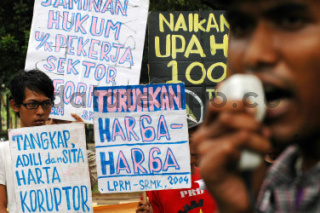 JAMINAN
HUKUM
1/2 PEKERJA
SEKTOR
NAIKAN
UPAH
100
TURUNKAN
HARGA-
HARGA
LPRM-SRMK. 2004
TANGKAP,
ADILI dan SITA
HARTA
KORUPTOR
PRD